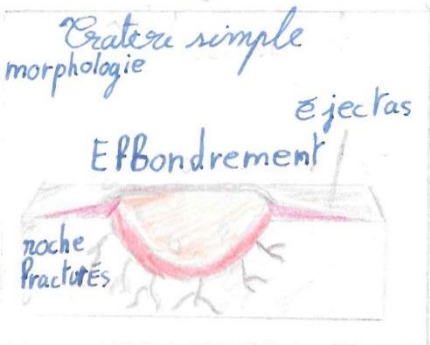 Cratere simple
morphologie
Ejectas
Effondrement
roche
fracturés